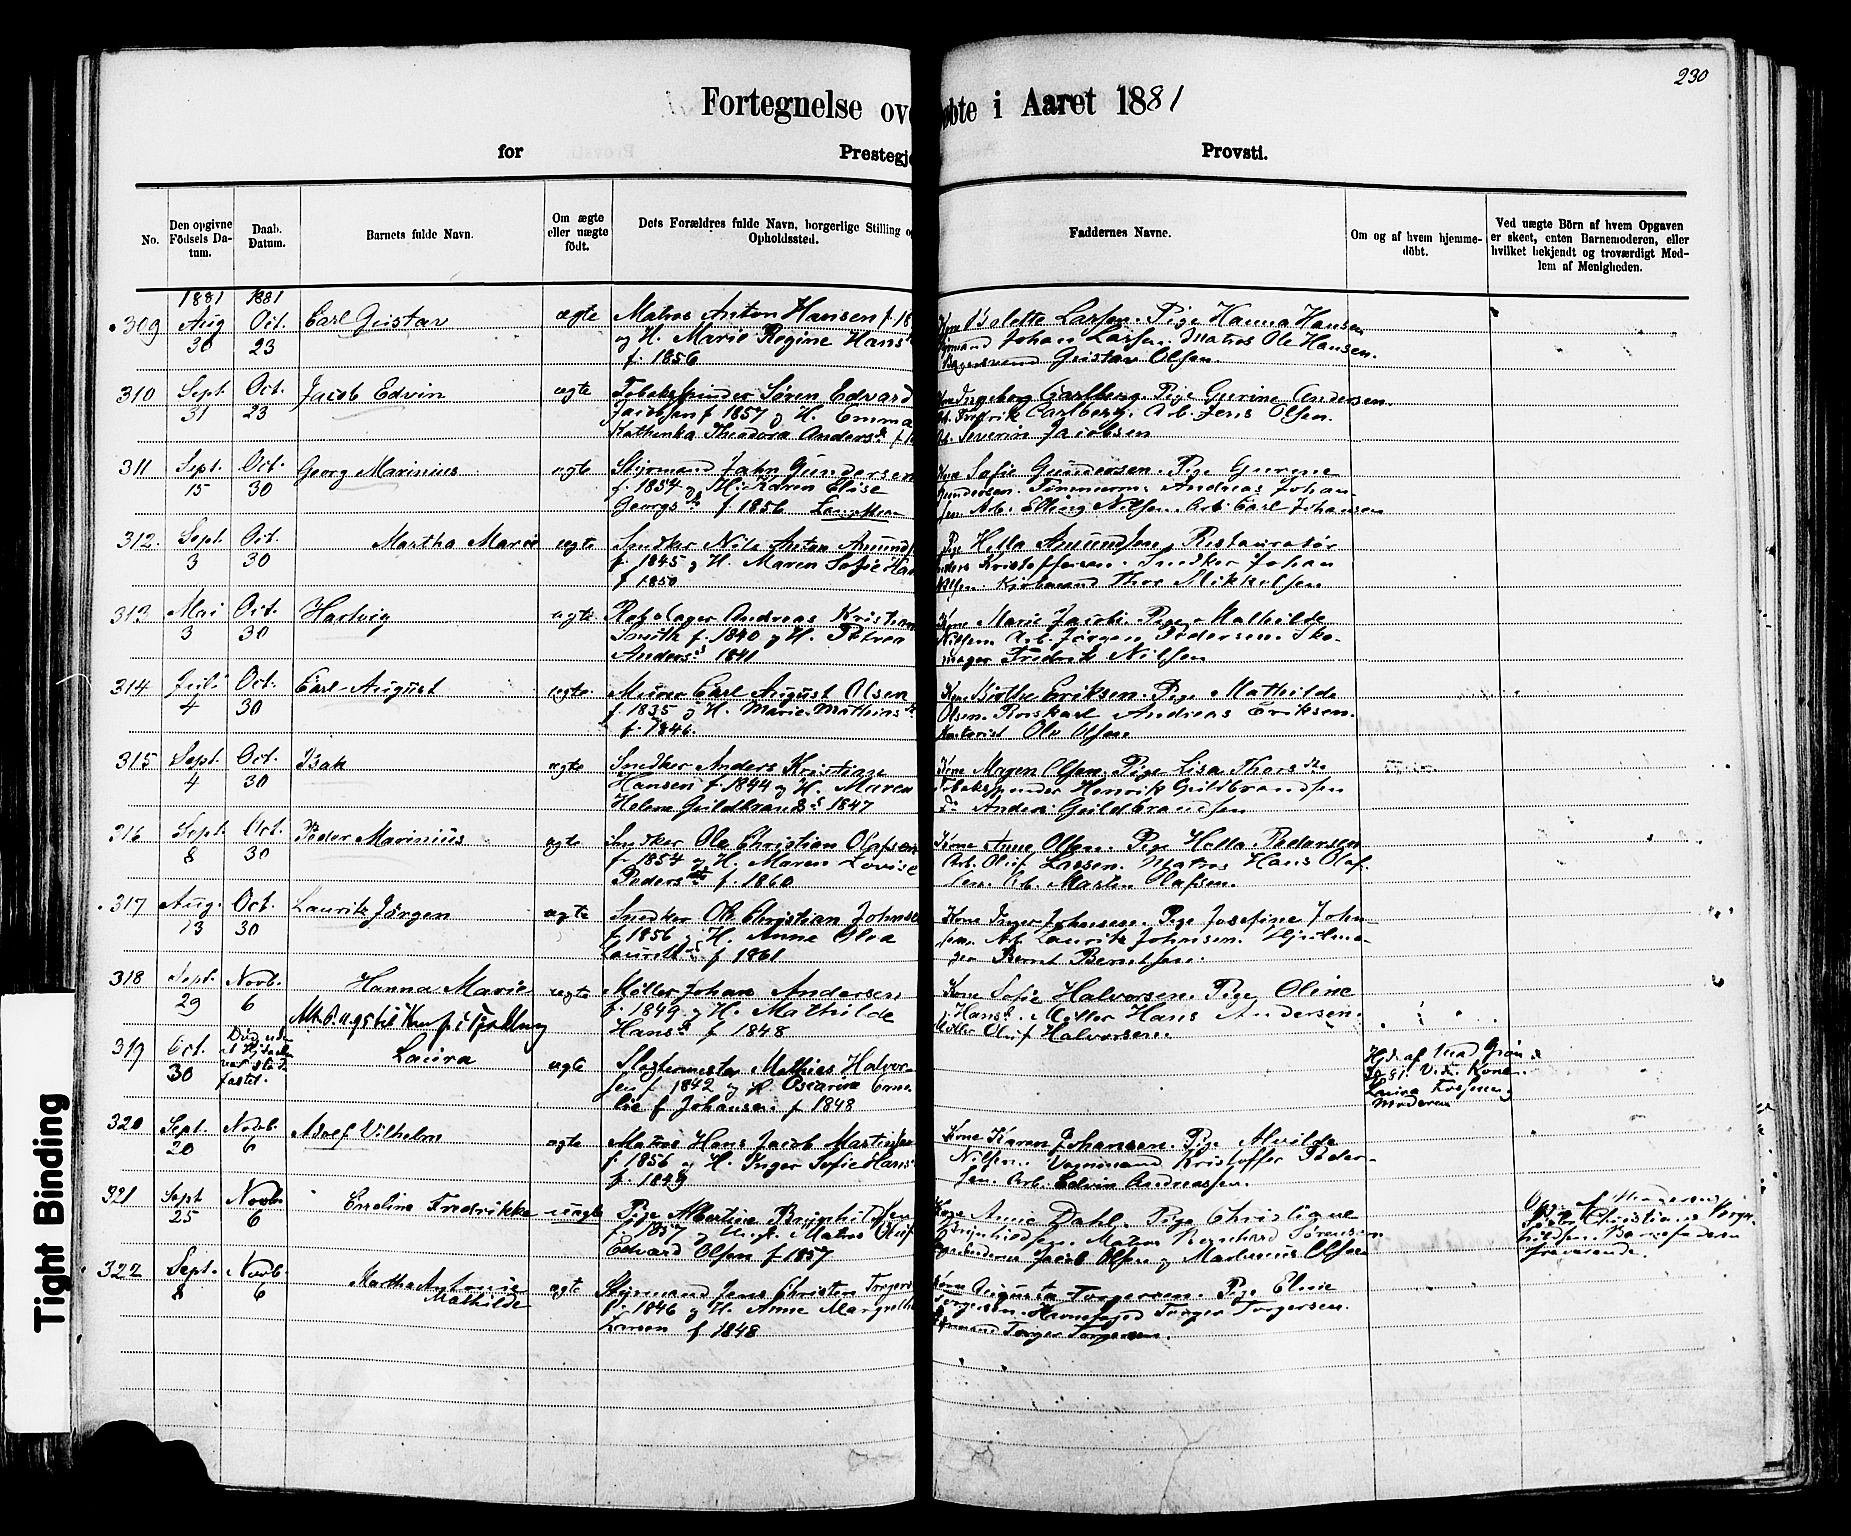 230
Fortegnelse ov øbte i Aaret 1881
for Prestegje Provsti.
No.
Den opgivne Födsels Datum.
Daab. Datum.
Barnets fulde Navn.
Om ægte eller uægte födt.
Dets Forældres fulde Navn, borgerlige Stilling o Opholdssted.
Faddernes Navne.
Om og af hvem hjemmedöbt.
Ved uægte Börn af hvem Opgaven er skeet, enten Barnemoderen, eller hvilket bekjendt og troværdigt Medlem af Menigheden.
1881 1881
309 Aug 30 Oct. 23 Carl Gustav ægte Matros Anton Hansen f 18
og H. Marie Regine Hans
f. 1856
Kone Bolette Larsen. Pige Hanna Hansen
Johan Larsen. Matros Ole Hansen.
Gustav Olsen.
310 Sept. 31 Oct. 23 Jacob Edvin ægte Tobaksspinder Søren Edvard
Jacobsen f 1857 og H. Emma
Kathinka Theodora Anders
Ingeborg Carlberg. Pige Gurine Andersen
Fredrik Carlberg. Arb. Jens Olsen.
Severin Jacobsen
311 Sept. 15 Oct. 30 Georg Marinius ægte Styrmand John Gundersen
f. 1854 og H. Karen Elise
Georgs f. 1856
Kone Sofie Gundersen. Pige Gurine
Gundersen. Tømmerm. Andreas Johan-
sen Arb. Elling Nilsen. Arb. Carl Johansen
312. Sept. 3 Oct. 30 Martha Marie ægte Snedker Nils Anton Amunds
f. 1845 og H. Maren Sofie Han
f 1850
Pige Hella Amundsen. Restauratør
Kristoffersen. Snedker Johan
Thor Mikkelsen
313 Mai 3 Oct. 30 Hartvig ægte Rebslager Andreas Kristian
Smith f. 1840 og H. Petrea
Anders 1841
Kone Marie Jacobs. Pige Mathilde
Nilsen Arb. Jørgen Pedersen. Sko-
mager Fredrik Nilsen
314 Juli 4 Oct. 30 Carl August ægte Murer Carl August Olsen
f. 1835 og H. Marie Mathias
f. 1846.
Kone Birthe Eriksen. Pige Mathilde
Olsen. Andreas Eriksen.
Ole Olsen.
315 Sept. 4 Oct. 30 Isak ægte Snedker Anders Kristian
Hansen f. 1844 og H. Maren
Helene Guldbrands 1847
Kone Maren Olsen. Pige Lisa Thors
Tobakspinder Henrik Guldbrandsen
Do Anders Guldbrandsen
316 Sept. 8 Oct. 30 Peder Marinius ægte Snedker Ole Christian Olafsen
f. 1854 og H. Maren Lovise
Peders f. 1860
Kone Anne Olsen. Pige Hella Pedersen
Arb. Oluf Larsen. Matros Hans Olaf-
sen. Arb. Martin Olafsen.
317 Aug. 13 Oct. 30 Lauritz Jørgen ægte Snedker Ole Christian Johnse
f. 1856 og H. Anne Olea
Lauritz f 1861
Kone Inger Johnsen. Pige Josefine John-
sen. Arb. Lauritz Johnsen. Hjulma-
ger Bernt Berntsen.
318 Sept. 29 Novb. 6 Hanna Marie ægte Møller Johan Andersen
f. 1849 og H. Mathilde
Hans f 1848
Kone Sofie Halvorsen. Pige Oline
Hans. Møller Hans Andersen.
Møller Oluf Halvorsen.
319 Oct. 30 Laura ægte Slagtermester Mathias Halvor-
sen f 1842 og H. Oscarine Emi-
lie f Johansen f 1848
320 Sept. 20 Novb. 6 Adolf Vilhelm ægte Matros Hans Jacob Martinsen
f. 1856 og H. Inger Sofie Hans
f. 1849
Kone Karen Johansen. Pige Alvilde
Nilsen. Vognmand Kristoffer Peder-
sen. Arb. Edvin Andreassen.
321 Sept 25 Novb 6 Eveline Fredrikke uægte Pige Albertine Brynhildsen
f. 1857 og U.k. Matros Oluf
Edvard Olsen f. 1857
Anne Dahl. Pige Christiane
Brynhildsen. Matros Reinhard Sørensen
Jacob Olsen og Martinius Olsen
322 Sept. 8 Novb. 6 Martha Antonie
Mathilde
ægte Styrmand Jens Christen Torgers
f. 1846 og H. Anne Margrethe
Larsen f 1848
Kone Augusta Torgersen. Pige Eline
Torgersen. Havnefoged Torger Torgersen.
Torger Torgersen.
Tight Binding